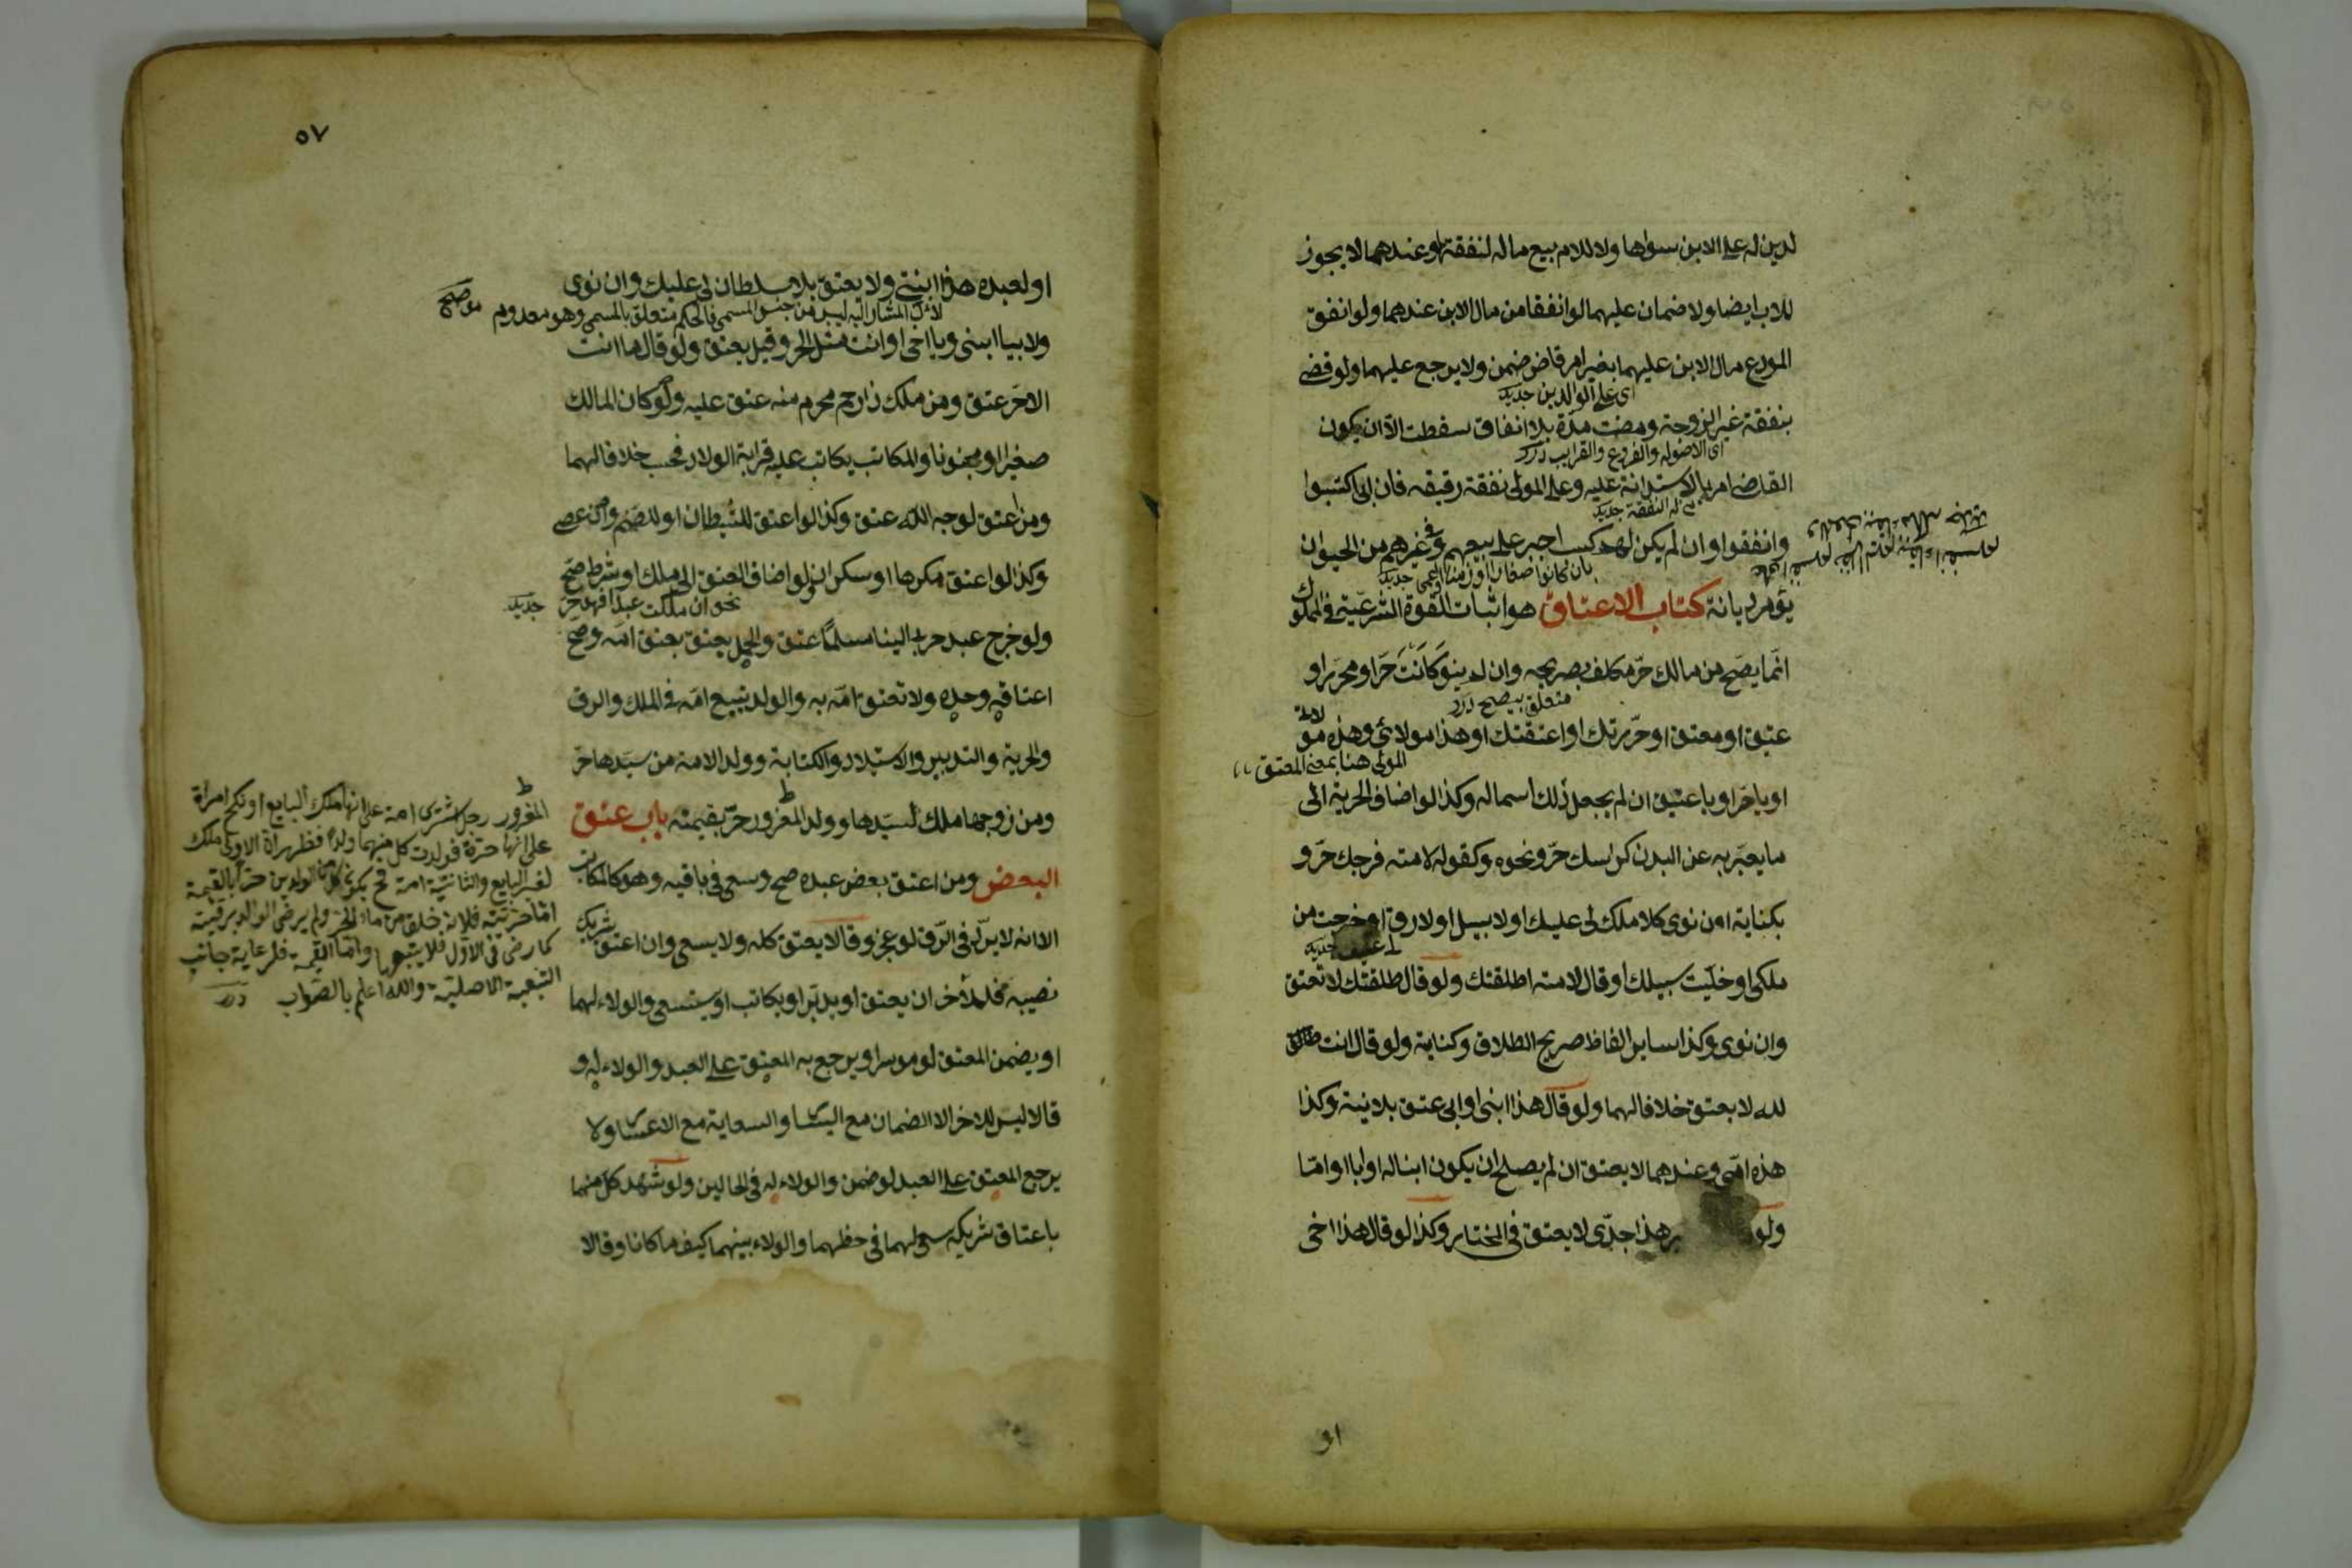 لدين له على الابن سواها ولا للام بيع ماله لنفقتها وعندهما لا يجوز
للاب ايضا ولا ضمان عليهما لو انفقا من مال الابن عندهما ولو انفق
المودع مال الابن عليهما بغير امر قاض ضمن ولا يرجع عليهما ولو قضى
اى على الوالدين جديد
بنفقة غير الزوجة ومضت مدة بلا انفاق سقطت الا ان يكون
اى الاصول والفروع والقرايب درر
القاضى امر بالاستدانة عليه وعلى المولى نفقة رقيقه فان ابى اكتسبوا
النفقة جديد
وانفقوا وان لم يكن لهم كسب اجبر على بيعهم وفى غيرهم من الحيوان
بان كانوا صغارا او زمنا او اعمى جديد
يؤمر ديانة كتاب الاعتاق هو اثبات القوة الشرعية فى المملوك
انما يصح من مالك حر مكلف بصريحه وان لم ينو كانت حر او محرر او
متعلق بيصح درر
عتيق او معتق او حررتك او اعتقتك او هذا مولائ وهذه مولاتى
المولى هنا بمعنى المعتق
او يا حر او يا عتيق ان لم يجعل ذلك اسما له وكذا لو اضاف الحرية الى
ما يعبر به عن البدن كراسك حر ونحوه وكقوله لامته فرجك حر و
بكناية اون نوى كلا ملك لى عليك او لا سبيل او لا رق او خرجت من
ملكى او خليت سبيلك او قال لامته اطلقتك ولو قال طلقتك لا تعتق
وان نوى وكذا ساير الفاظ صريح الطلاق وكناية ولو قال انت
لله لا يعتق خلافا لهما ولو قال هذا ابنى او ابى عتق بلا نية وكذا
هذه امى وعندهما لا يعتق ان لم يصلح ان يكون ابنا له او ابا او اما
ولو هذا جدى لا يعتق فى المختار وكذا لو قال هذا اخى
او
٥٧
او لعبده هذا ابنتى ولا يعتق بلا سلطان لى عليك وان نوى
لان المشار اليه ليس من جنس المسمى فالحكم متعلق بالمسمى وهو معدوم
ولا بيا ابنى ويا اخى او انت مثل الحر وقيل يعتق ولو قال ما انت
الا حر عتق ومن ملك ذا رحم محرم منه عتق عليه ولو كان المالك
صغيرا او مجنونا والمكاتب يكاتب عليه قرابة الولاد فحسب خلافا لهما
ومن اعتق لوجه الله عتق وكذا لو اعتق للشيطان او للصنم وان عصى
وكذا لو اعتق مكرها او سكران ولو اضاف العتق الى ملك او شرط صح
نحو ان ملكت عبدا فهو حر جديد
ولو خرج عبد حربى الينا مسلما عتق والحمل يعتق بعتق امه وصح
اعتاقه وحده ولا تعتق امه به والولد يتبع امه فى الملك والرق
والحرية والتدبير والاستيلاد والكتابة وولد الامة من سيدها حر
ومن زوجها ملك لسيدها وولد المغرور حر بقيمته باب عتق
البعض ومن اعتق بعض عبده صح وسعى فى باقيه وهو كالمكاتب
الا انه لا يرد فى الرق لو عجز وقالا يعتق كله ولا يسعى وان اعتق شريك
نصيبه فللاخر ان يعتق او يدبر او يكاتب او يستسعى والولاء لهما
او يضمن المعتق لو موسرا ويرجع به المعتق على العبد والولاء له و
قالا ليس للاخر الا الضمان مع اليسار والسعاية مع الاعسار ولا
يرجع المعتق على العبد لو ضمن والولاء له فى الحالين ولو شهد كل منهما
باعتاق شريكه سعى لهما فى حظهما والولاء بينهما كيف ما كانا وقالا
المغرور رجل اشترى امة على انها ملك البايع او نكح امراة
على انها حرة فولدت كل منهما ولدا فظهر ان الاولى ملك
لغير البايع والثانية امة فح يكون كل من الولدين حرا بالقيمة
اما حريته فلانه خلق من ماء الحر ولم يرض الوالد برقيته
كما رضى فى الاول فلا يتبعها واما القيمة فلرعاية جانب
التبعية الاصلية والله اعلم بالصواب درر